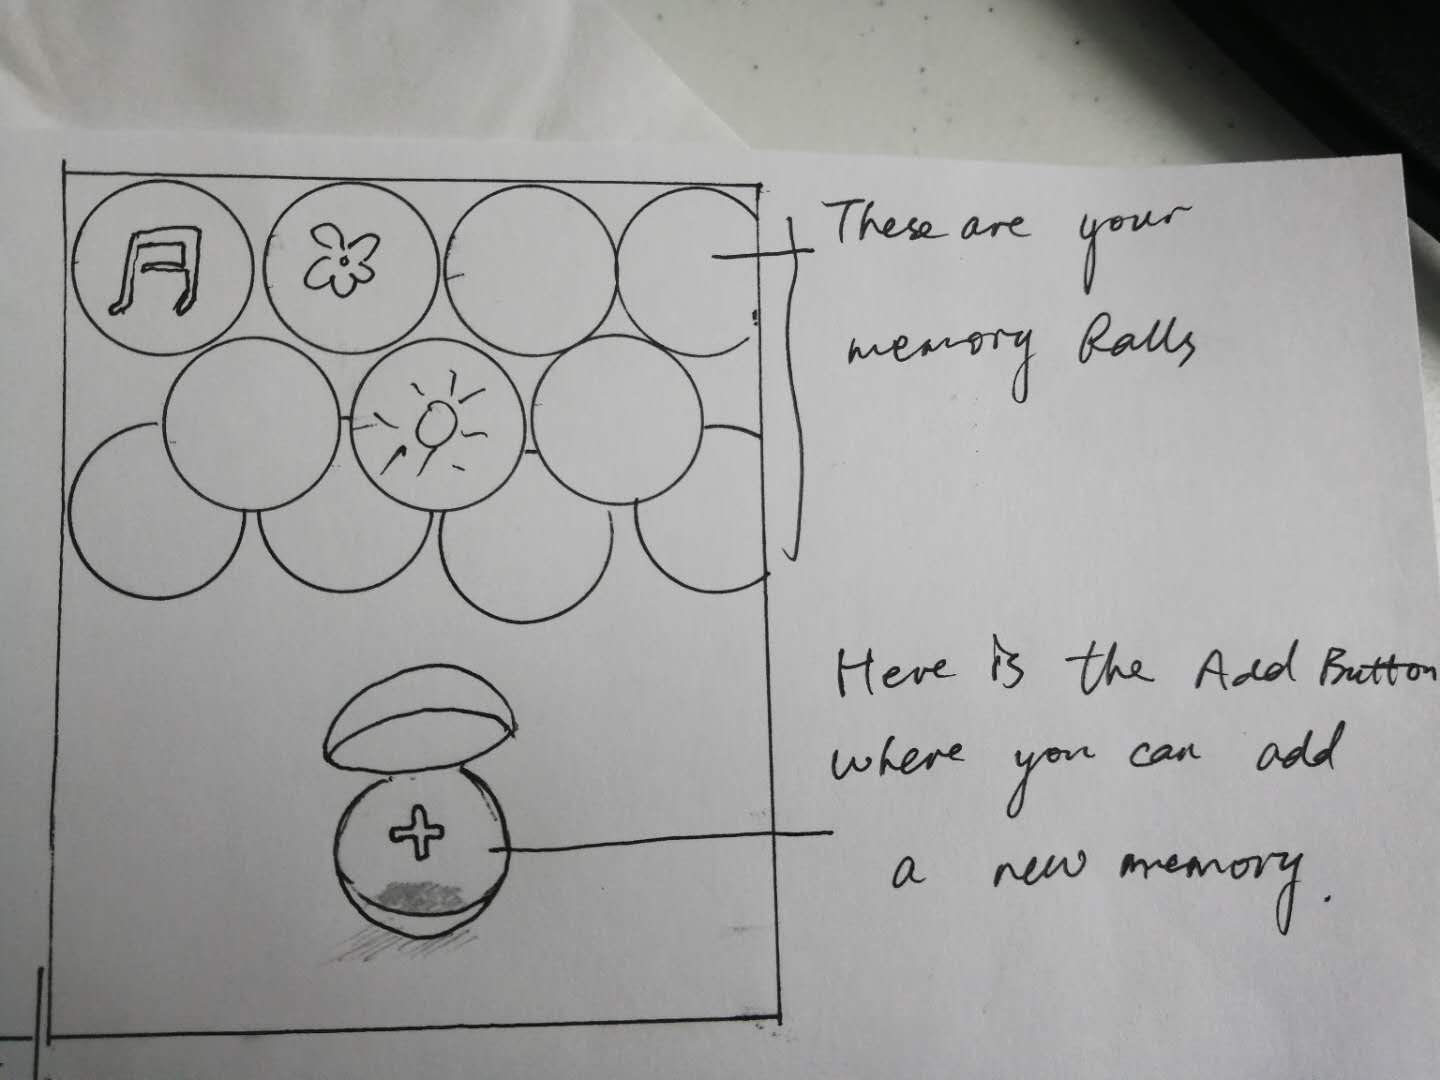 These are your
memory Balls
Here is the Add Button
where you can add
a new memory.